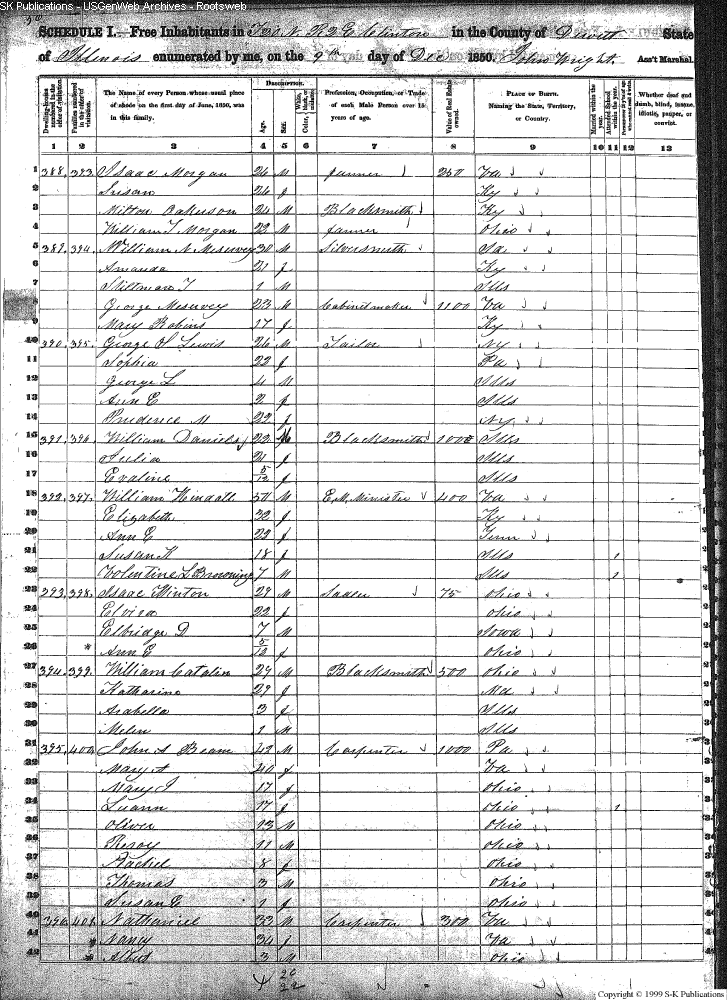 SK Publications - USGenWeb Archives - Rootsweb
SCHEDULE I.—Free Inhabitants in N. R 2 E Clinton in the County of Dewitt State
of Illinois enumerated by me, on the 9th day of Dec 1850. John Wright. Ass't Marshal.
Dwelling-houses numbered in the order of visitation. Families numbered in the order of visitation. The Name of every Person whose usual place of abode on the first day of June, 1850, was in this family. DESCRIPTION. Age. Sex. White, black, or mulatto. Color, Profession, Occupation, or Trade of each Male Person over 15 years of age. Value of Real Estate owned. PLACE OF BIRTH. Naming the State, Territory, or Country. Married within the year. Attended School within the year. Whether deaf and dumb, blind, insane, idiotic, pauper, or convict.
1 2 3 4 5 6 7 8 9 10 11 12 13
1 388 393 Isaac Morgan 26 M farmer 250 Va
2 Susan 26 f Ky
3 Milton 24 M Blacksmith Ky
4 William T Morgan 22 M farmer Ohio
5 389 394 William N Meservey 30 M Silversmith
6 Amanda 21 f Ky
7 Stillman T 1 M Ills
8 George Meservey 23 M Cabinetmaker 1100 Va
9 Mary Robins 17 f Ky
10 390 395 George S Lewis 26 M Tailor Ny
11 Sophia 22 f Pa
12 George L 4 M Ills
13 Ann E 2 f Ills
14 Prudence M 22 f Ny
15 391 396 William Daniels 22 M Blacksmith 1000 Ills
16 Julia 21 f Ills
17 Evaline 5/12 f Ills
18 392 397 William Kindall 50 M E.M. Minister 400 Va
19 Elizabeth 32 f Ky
20 Ann E 22 f Tenn
21 Susan K 18 f Ills 1
22 Volentine L Browning 7 M Ills 1
23 293 398 Isaac Minton 29 M Sadler 75 Ohio
24 Elvira 22 f Ohio
25 Elbridge D 7 M Iowa
26 * Ann E 5/12 f Ohio
27 394 399 William Catalin 29 M Blacksmith 500 Ohio
28 Katharine 29 f Md
29 Arabella 3 f Ills
30 1 M Ills
31 395 400 John A Beam 42 M Carpenter 1000 Pa
32 Mary A 40 f Va
33 Mary J 17 f Ohio
34 Luann 17 f Ohio 1
35 Oliver 13 M Ohio
36 Leroy 11 M Ohio
37 Rachel 8 f Ohio
38 Thomas 3 M Ohio
39 Susan E 1 f Ohio
40 396 401 Nathaniel 33 M Carpenter 300 Va
41 * Nancy 34 f Va
42 * Albert 3 M Ohio
20
22
Copyright © 1999 S-K Publications